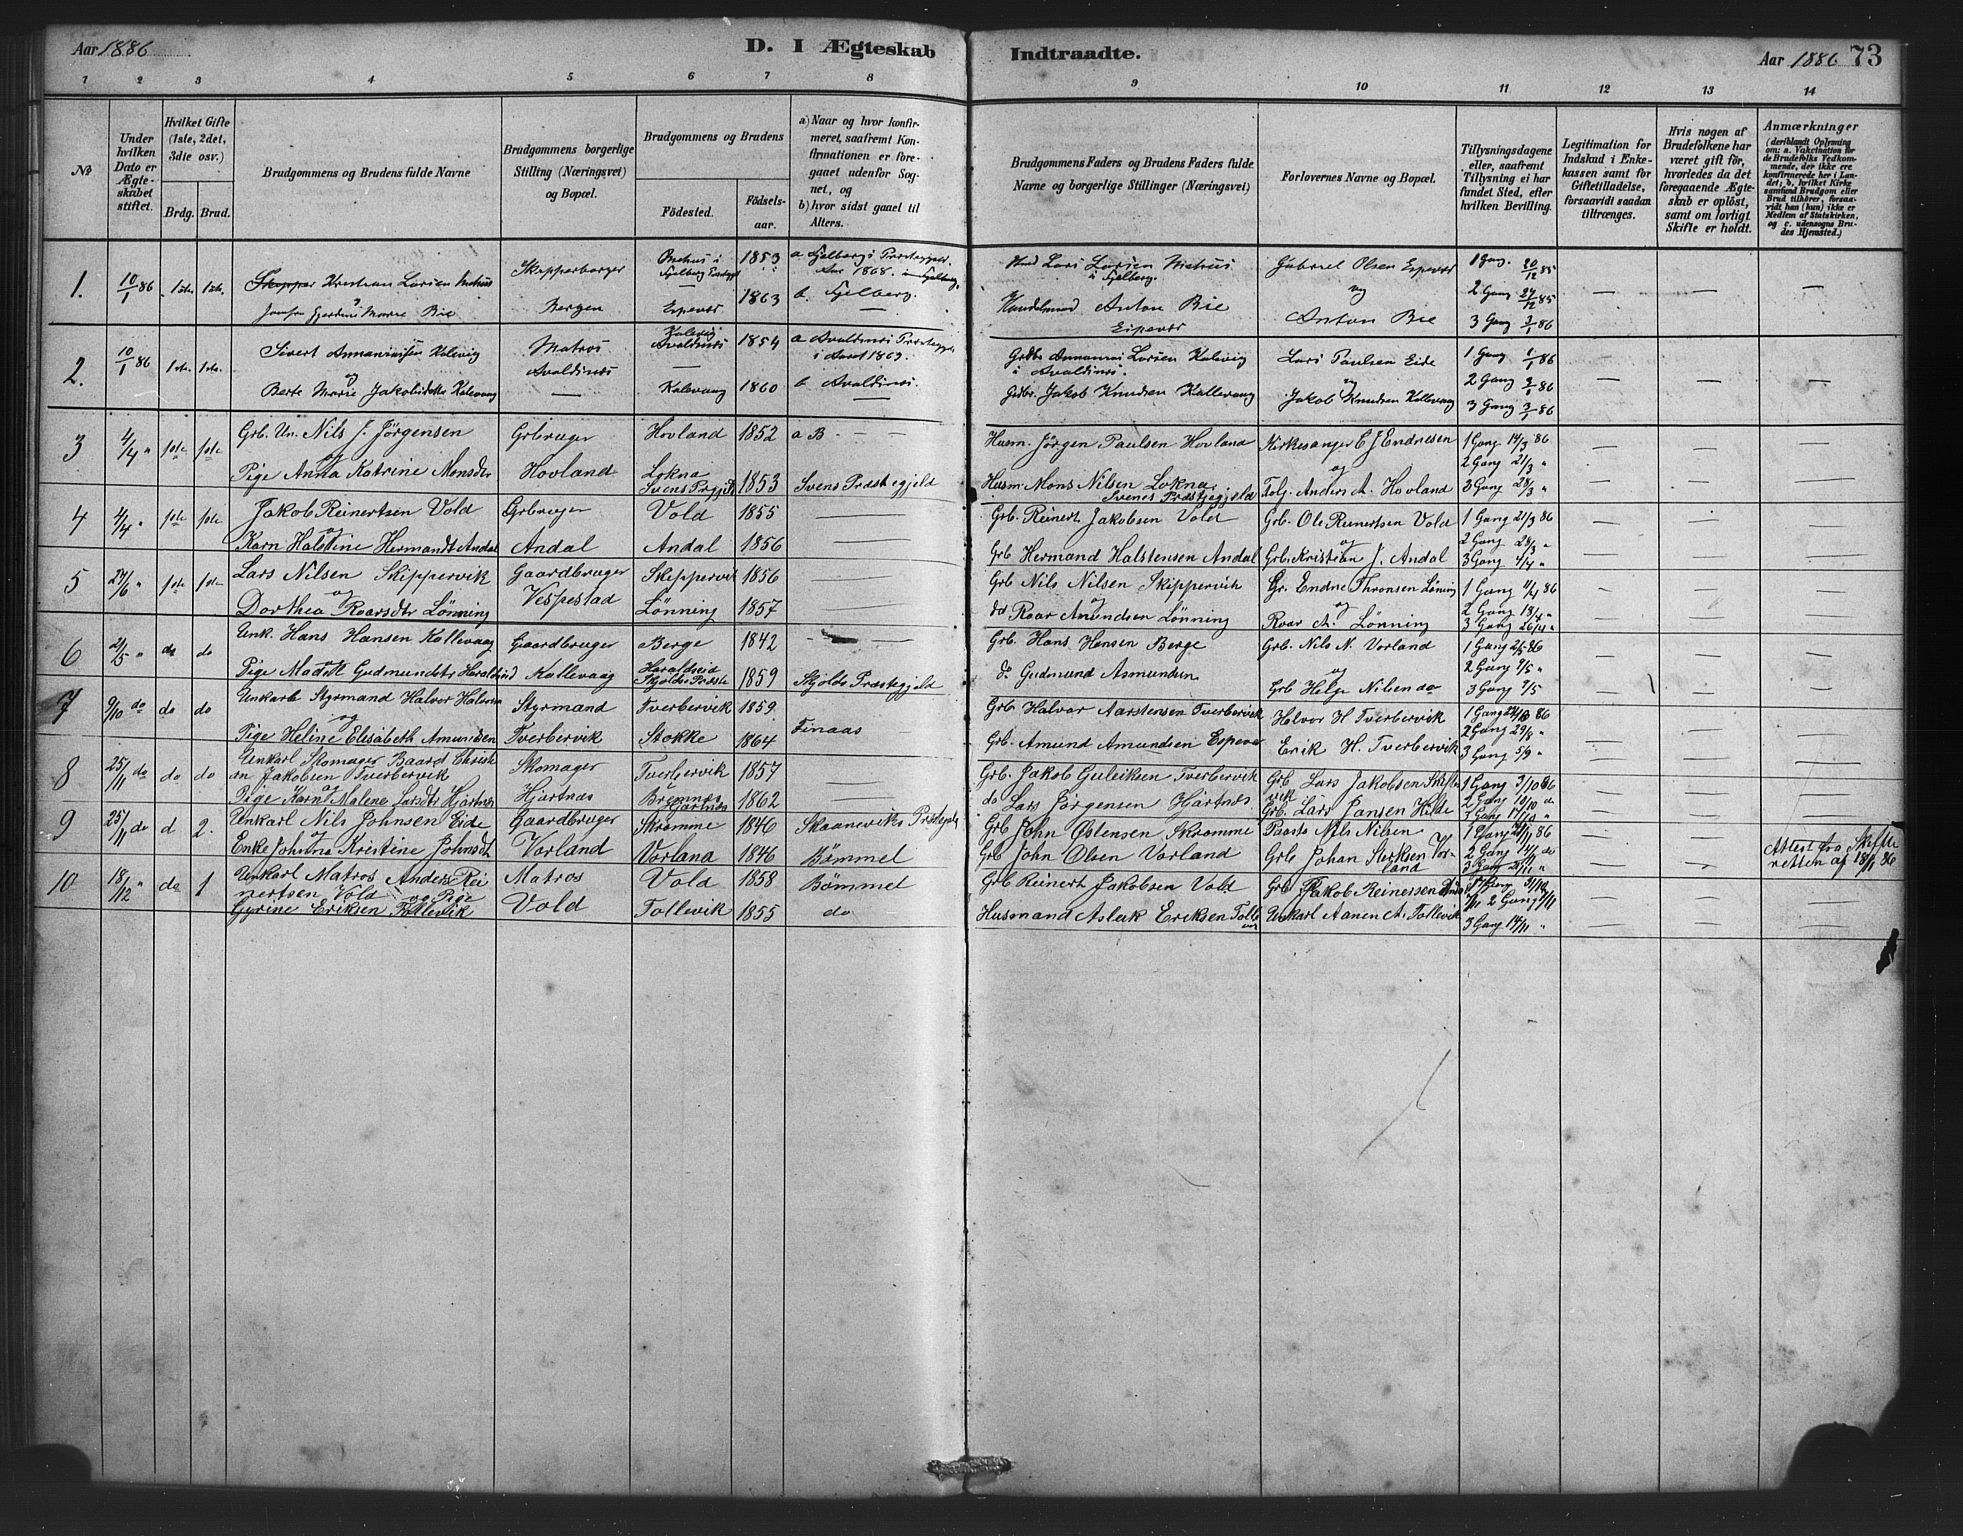 Aar 1886
D. I Ægteskab Indtraadte.
Aar 1886 73
1 2 3 4 5 6 7 8 9 10 11 12 13 14
No
Under hvilken Dato er Ægteskabet stiftet.
Hvilket Gifte (1ste, 2det, 3die osv.)
Brdg. Brud.
Brudgommens og Brudens fulde Navne
Brudgommens borgerlige Stilling (Næringsvei) og Bopæl.
Brudgommens og Brudens
Fødested.
Fødselsaar.
a) Naar og hvor konfirmeret, saafremt Konfirmationen er foregaaet udenfor Sognet, og
b) hvor sidst gaaet til Alters.
Brudgommens Faders og Brudens Faders fulde Navne og borgerlige Stillinger (Næringsvei)
Forlovernes Navne og Bopæl.
Tillysningsdagene eller, saafremt Tillysning ei har fundet Sted, efter hvilken Bevilling.
Legitimation for Indskud i Enkekassen samt for Giftetilladelse, forsaavidt saadan tiltrænges.
Hvis nogen af Brudefolkene har været gift før, hvorledes da det foregaaende Ægteskab er opløst, samt om lovligt Skifte er holdt.
Anmærkninger (deriblandt Oplysning om: a. Vakcination for de Brudefolks Vedkommende, der ikke ere konfirmerede her i Landet; b. hvilket Kirkesamfund Brudgom eller Brud tilhører, forsaavidt han (hun) ikke er Medlem af Statskirken, og c. udensogns Brudes Hjemsted.)
1. 10/1 86 1ste. 1ste. Skipper Kristian Larsen Mehus Skipperborger Mehus i Fjelberg 1853 a Fjelbergs Præstegjel Aar 1868. Lars Larsen Mehus i Fjelberg. Gabriel Olsen Espevær 1 Gang 20/12 85
og 2 Gang 27/12 85
Marie Bie Bergen Espevær 1863 b. Fjelberg. Handelsmand Anton Bie Espevær Anton Bie 3 Gang 3/1 86
2. 10/1 86 1ste. 1ste. Sivert Kalevig Matros Kalevig Avaldsnes 1854 a Avaldsnes Præstegjel i Aaret 1869. Larsen Kalevig i Avaldsnes. Lars Paulsen Eide 1 Gang 1/1 86
og Avaldsnes 2 Gang 86
Berte Marie Jakobsdtr Kalevaag Kalevaag 1860 b Avaldsnes. Grdbr. Jakob Knudsen Kallevaag Jakob Knudsen Kallevaag 3 Gang 3/1 86
3 4/4 " 1ste 1ste Grb. Un. Nils J. Jörgensen Grbruger Hovland 1852 a B Husm. Jørgen Paulsen Hovland Kirkesanger E J Endresen 1 Gang 14/3 86
og 2 Gang 21/3 "
Pige Anna Katrine Monsdtr Hovland Lokna Svens Prgjld 1853 Svens Præstegjeld Husm. Mons Nilsen Lokna Svenes Præstegjeld Anders A. Hovland 3 Gang 28/3 "
4 4/4 " 1ste 1ste Jakob Reinertsen Vold Grbruger Vold 1855 Grb. Reinert Jakobsen Vold Grb. Ole Reinertsen Vold 1 Gang 21/3 86
og 2 Gang 28/3 "
Karn Halstine Hermandt Andal Andal Andal 1856 Grb Hermand Halstensen Andal Grb. Kristian J. Andal 3 Gang 4/4 "
5 24/6 " 1ste 1ste Lars Nilsen Skippervik Gaardbruger Skippervik 1856 Grb Nils Nilsen Skippervik Gr. Endre Thronsen Löning 1 Gang 11/4 86
og 2 Gang 18/4 "
Dorthea Roarsdtr Lønning Vespestad Lønning 1857 do Roar Amundsen Lønning Roar A. Lønning 3 Gang 26/4 "
6 2/5 " do do Unk. Hans Hansen Kallevaag Gaardbruger Berge 1842 Grb. Hans Hansen Berge Grb. Nils N. Vorland 1 Gang 86
og 2 Gang "
Pige Gudmundsdtr Haraldseid Kallevaag Haraldseid Skjolds Præste 1859 Skjolds Præstegjeld do Gudmund Asmundsen Grb Helge Nilsen do 3 Gang 9/5
7 9/10 do do do Unkarb Styrmand Halvor Halvorsen Styrmand Tverbervik 1859 Grb. Halvor Aarstensen Tverbervik Halvor H Tverbervik 1 Gang 86
og 2 Gang 29/8 "
Pige Heline Elisabeth Amundsen Tverbervik Stokke 1864 Finaas Grb. Amund Amundsen Espevær Erik H. Tverbervik 3 Gang 5/9 "
8 25/11 do do do Unkarl Skomager Baard Christian Jakobsen Tverbervik Skomager Tverbervik 1857 Grb. Jakob Guleiksen Tverbervik Grb Lars Jakobsen 1 Gang 3/10 86
2 Gang 10/10 do
Pige Karn Malene Larsdtr Hjartnæs Hjartnæs Brønnæs Hjartnæs 1862 do Lars Jørgensen Hjartnæs Grb. Lars Jansen Hilde 3 Gang 17/10 do
9 25/11 do d 2. Unkarl Nils Johnsen Eide Gaardbruger Skromme 1846 Skaaneviks Præstegjeld Grb John Østensen Skromme Nils Nilsen 1 Gang 86
og 2 Gang do
Enke Johnna Kristine Johnsdt Vorland Vorland 1846 Bömmel Grb John Olsen Vorland Grb Johan Vorland 3 Gang 21/11 " Attest fra Skifteretten af 18/11 86
10 18/12 " do 1 Unkarl Matros Anders Reinertsen Vold og Pige Matros Vold 1858 Bömmel Grb Reinert Jakobsen Vold Grb Jakob Reinertsen 1 Gang 31/10
2 Gang 7/11
Gyrine Eriksen Tollevik Vold Tollevik 1855 do Husmand Aslak Eriksen Tollevik Unkarl Aanen A. Tollevik 3 Gang 14/11 "